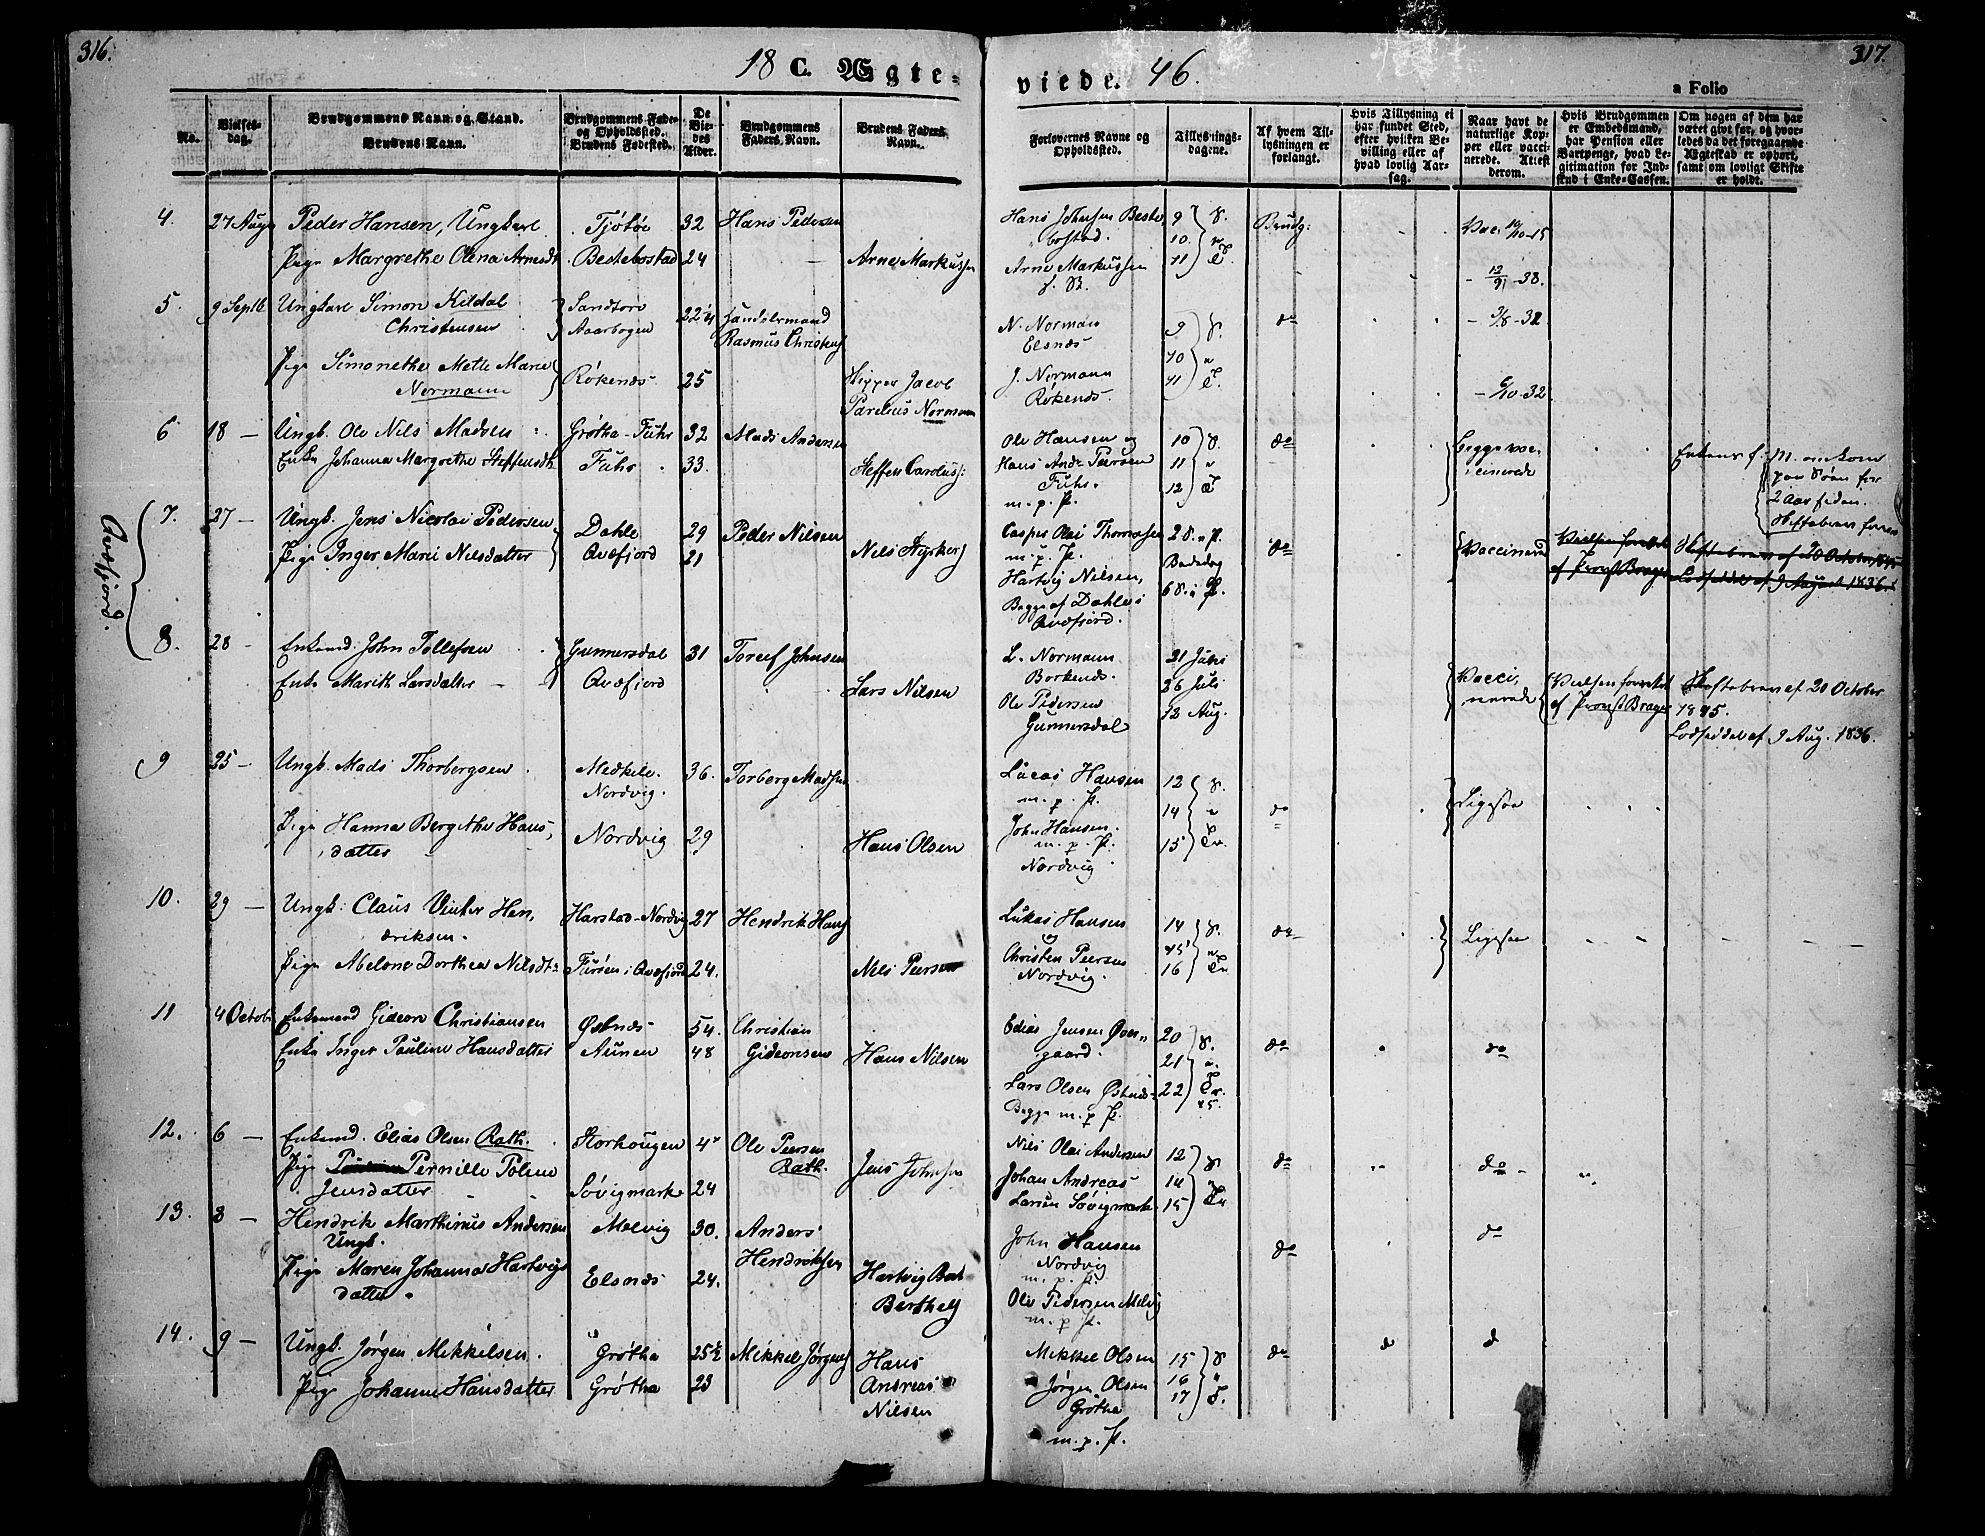 316.
317.
18 C. Ægte-
viede. 46.
a Folio
No.
Vielses-
dag.
Brudgommens Navn og Stand.
Brudens Navn.
Brudgommens Føde-
og Opholdssted.
Brudens Fødested.
De
Vie-
des
Alder.
Brudgommens
Faders Navn.
Brudens Faders
Navn.
Forlovernes Navne og
Opholdssted.
Tillysnings-
dagene.
Af hvem Til-
lysningen er
forlangt.
Hvis Tillysning ei
har fundet Sted,
efter hvilken Be-
villing eller af
hvad lovlig Aar-
sag.
Naar havt de
naturlige Kop-
per eller vacci-
nerede. Attest
derom.
Hvis Brudgommen
er Embedsmand,
har Pension eller
Vartpenge, hvad Le-
gitimation for Ind-
skud i Enke-Cassen.
Om nogen af dem har
været gift før, og hvor-
ledes da det foregaaende
Ægteskab er ophørt,
samt om lovligt Skifte
er holdt.
4. 27 Aug Peder Hansen, Ungkarl Tjötöe 32 Hans Pedersen
Hans Johnsen Beste
bostad. 9 10. 11 Brudg: Vac: 19/10-15
Pige Margrethe Olena Arnesdt. Bestebostad 24 Arne Markussen
Arne Markussen
- 12/9-38.
5. 9 Septb Ungkarl Simon Kildal
Christensen Sandtorv
Aarbogen 22 Handelsmand
Rasmus Christens
N. Normann
Elsnæs 9 10 11 do
Pige Simonethe Mette Marie
Normann Røkenæs 25 Skipper Jacob
Parelius Normann
J. Normann
Røkenæs. - 6/10-32
6 18 - Ungk. Ole Nils Madsen Grøtha-Fuhr 32 Mads Andersen
Ole Hansen og 10 11 12 do Begge vac-
cinerede
Enke Johanna Margrethe Steffensdt. Fuhr 33. Steffen Carolius:
Hans And: Peersen
Fuhr.
m. p. P.
Enkens f. M. omkom
paa Søen for
2 Aar siden.
Skiftebrev forev
Qvæfjord.
7. 27 - Ungk. Jens Nicolai Pedersen Dahle 29 Peder Nilsen
Pige Inger Marie Nilsdatter Qvæfjord 21 Nils Styrkers
Casper Olai Thomassen
m. p. P.
Hartvig Nilsen,
Begge af Dahle i
Qvæfjord.
2 S. Bededag
6 S. do Vaccinered
Vielsen forrettet
af Provst Brager
Skiftebrev af 20 October 1845
Lodseddel af 9 August 1836.
8. 28 - Enkemd. John Tollefsen Gunnersdal 31 Torlef Johnsen
Enke Marith Larsdatter Qvæfjord Lars Nilsen
L. Normann
Borkenæs.
Ole Pedersen
Gunnersdal
21 Juni
26 Juli
12 Aug.
Vacci,
nerede
Vielsen forrettet
af Provst Brager
Skiftebrev af 20 October
1845.
Lodseddel af 9 Aug. 1836.
9 25 - Ungk. Mads Thorbergsen Medkile.
Nordvig. 36. Torberg Madsen
Lucas Hansen
m. p. P. 12 14 15 do Ligesaa
Pige Hanna Bergithe Hans,
datter Nordvig 29 Hans Olsen
John Hansen.
m. p. P.
Nordvig
10. 29 - Ungk: Claus Vinter Hen,
driksen. Harstad-Nordvig 27 Hendrik Hans
Lukas Hansen
og 14 15 16 do Ligesaa
Pige Abelone Dorthea Nilsdt. i Qvæfjord 24. Nils Peersen
Christen Peersen
Nordvig.
11 4 Octobr Enkemand Gideon Christiansen Østnæs 54. Christian
Gideonsen
Enke Inger Pauline Hansdatter Aunen 48 Hans Nilsen
Edias Jensen Øver,
gaard. 20 21 22 do do
Lars Olsen Østnæs
Begge m. p. P.
12. 6 - Enkemd. Elias Olsen Rath. Storhougen 4 Ole Peersen
Rath.
Pige Pernille Poline
Jensdatter Søvigmark 24 Jens Johnsen
Niels Olai Andersen 12 14 15 do do
Johan Andreas
Larsen Søvigmark
13. 8 - Hendrik Marthinus Andersen
Ungk. Melvig 30. Anders
Hendriksen
Pige Maren Johanna Hartvigs
datter Elsnæs 24. Hartvig
Berthels
John Hansen
Nordvig
m. p. P. do do
Ole Pedersen Melvig
m. p. P.
14. 9 - Ungk. Jørgen Mikkelsen Grøtha 25½ Mikkel Jørgens
Pige Johanne Hansdatter Grøtha 23 Hans
Andreas
Nilsen
Mikkel Olsen 15 16 17 do
Jørgen Olsen
Grøtha
m. p. P.